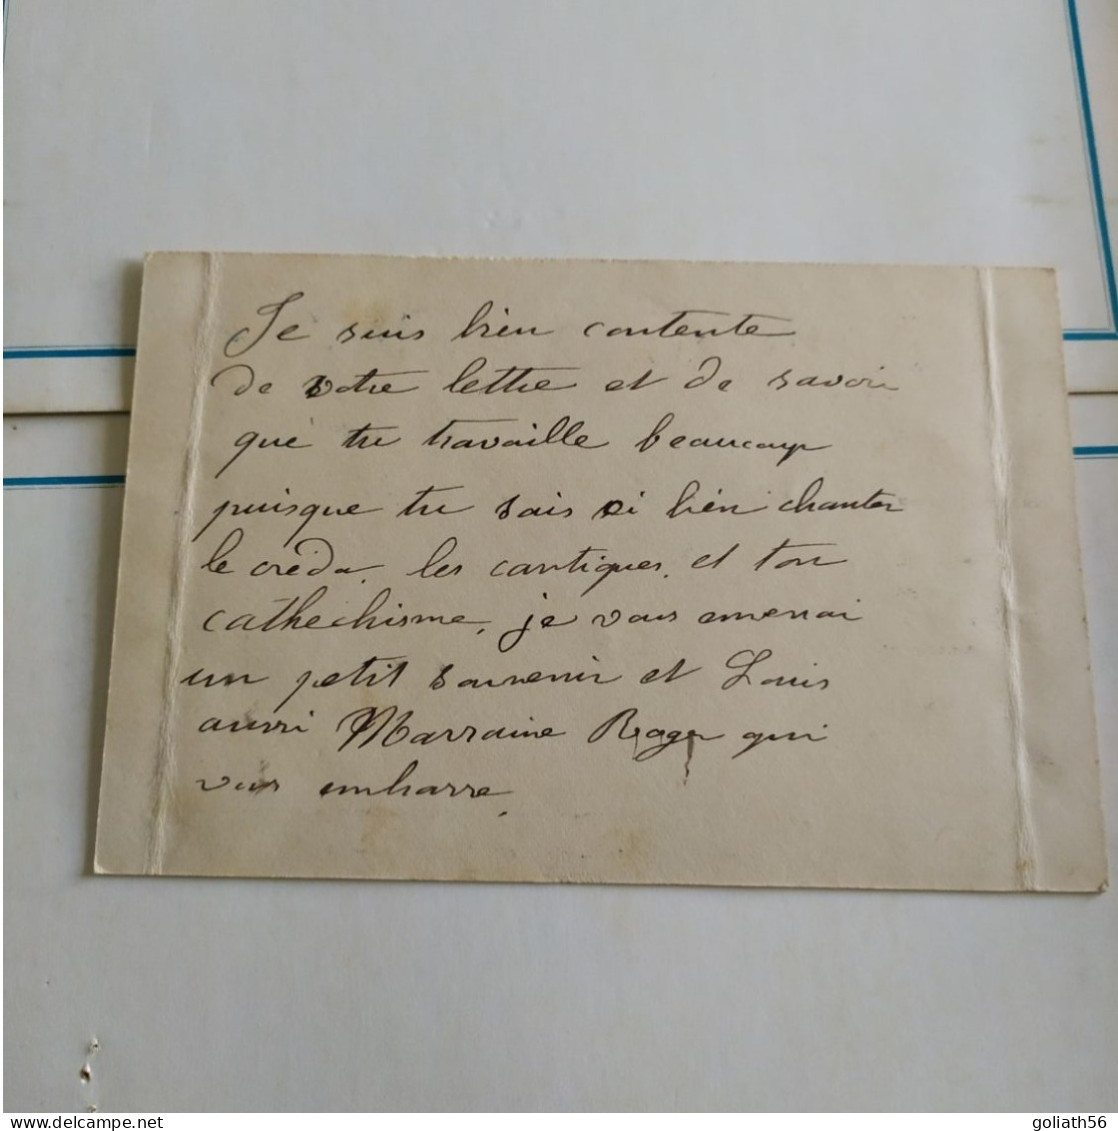 Je suis bien contente
de votre lettre et de savoir
que tu travaille beaucoup
puisque tu sais si bien chanter
le crédo, les cantiques, et ton
cathechisme, je vous emenai
un petit souvenir et Louis
aussi Marraine Roger qui
vous embarre,
goliath56